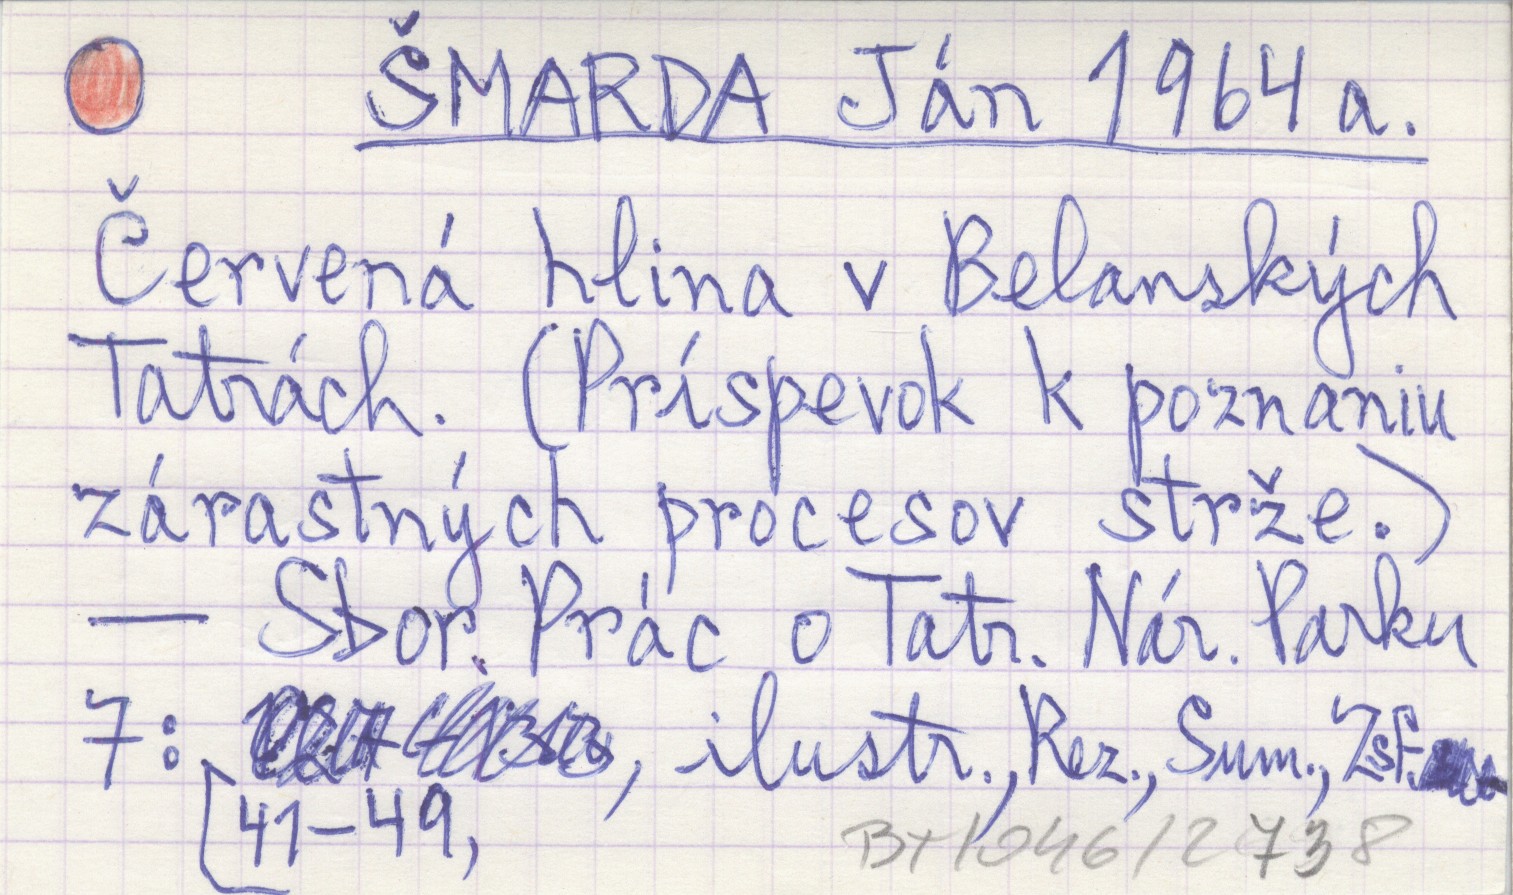 ŠMARDA Ján 1964 a.
Červená hlina v Belanských
Tatrách. (Príspevok k poznaniu
zárastných procesov strže.)
— Sbor. Prác o Tatr. Nár. Parku
7: , ilustr., Rez., Sum., Zsf.
41–49,